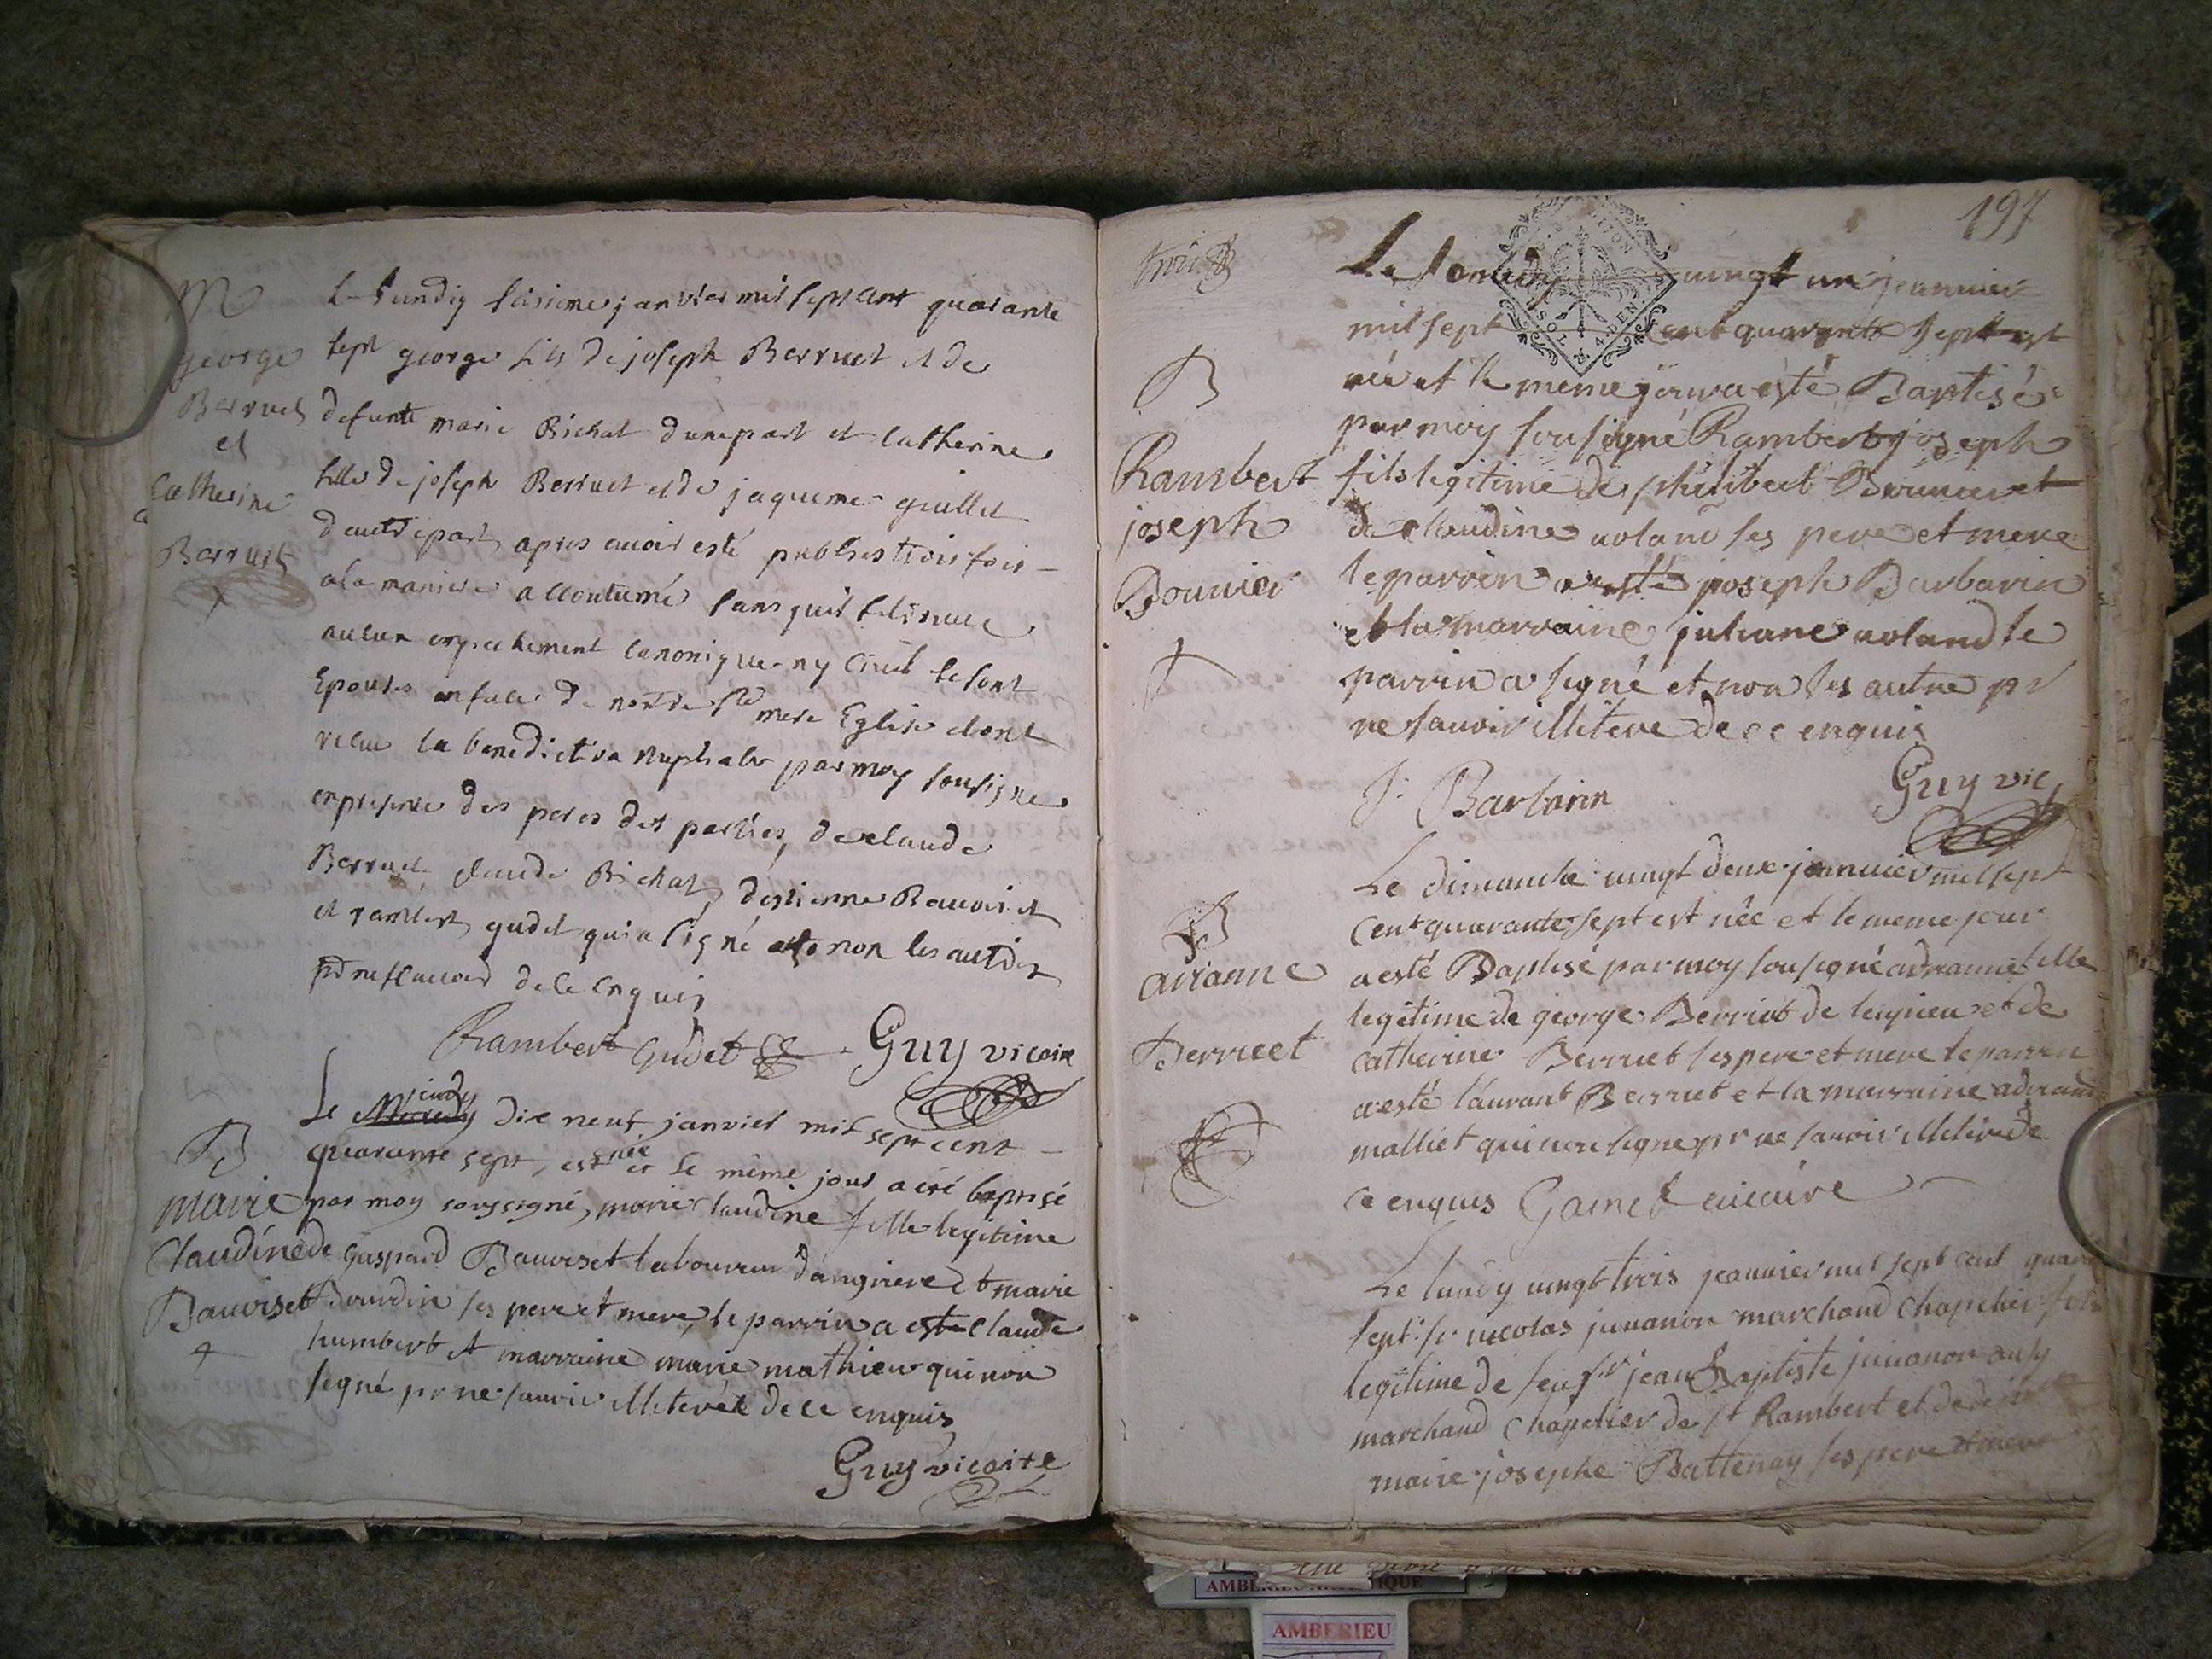 M
george
Berruet
et
Catherine
Berruet
Le lundy seisieme janvier mil sept cent quarante
sept george fils de joseph Berruet et de
defunte marie Bichat d'une part et Catherine
fille de joseph Berruet et de jaqueme guillet
d'autre part apres avoir esté publies trois fois
a la maniere accoutumé sans quil
aucun empechement canonique ny civil se sont
Epouses en face de nostre ste mere Eglise et ont
recue la benediction nuptiale par moy sousigne
en presence des peres des parties, de claude
Berruet claude Bichat, destienne Bauvoiset
et rambert gudet qui a signé et non les autres
pr ne scavoir de ce Enquis
Rambert Gudet Guy vicaire
B
marie
Claudine
Bauviset
Le Mercredy jeudy dix neuf janvier mil sept cent
quarante sept, est née et le même jour a été baptisé
par moy soussigné, marie claudine fille legitime
de Gaspard Bauviset laboureur dangriere et marie
Bourdin ses pere et mere, le parrin a este claude
humbert et marraine marie mathieu qui non
signé pr ne sauoir illiteré de ce enquis
Guy vicaire
197
trois
B
Rambert
joseph
Bounier
Le samedy vingt un jeanvier
mil sept cent quarante sept est
née et le meme jour a esté Baptisé
par moy sousigné Rambert joseph
fils legitime de philibert Bounier et
de claudine uoland ses pere et mere
le parrin a esté joseph Barbarin
et la marraine juliane uoland le
parrin a signé et non les autre pr
ne sauoir illitere de ce enquis
J. Barbarin Guy vic
B
arianne
Berruet
Le dimanche vingt deux jeanuier mil sept
cent quarante sept est née et le meme jour
a esté Baptisé par moy sousigné adrianne fille
legitime de george Berruet de leignieu et de
catherine Berruet ses pere et mere le parrin
a esté laurant Berruet et la marraine
malliet qui non signe pr ne sauoir illitere de
ce enquis Gamet uicaire
Le lundy vingt trois jeanuier mil sept cent quara
sept sr nicolas juuanon marchand chapelier fils
legitime de feu sr jean Baptiste juuanon ausy
marchand chapelier de st Rambert et de
marie josephe Battenay ses pere et mere
AMBERIEU